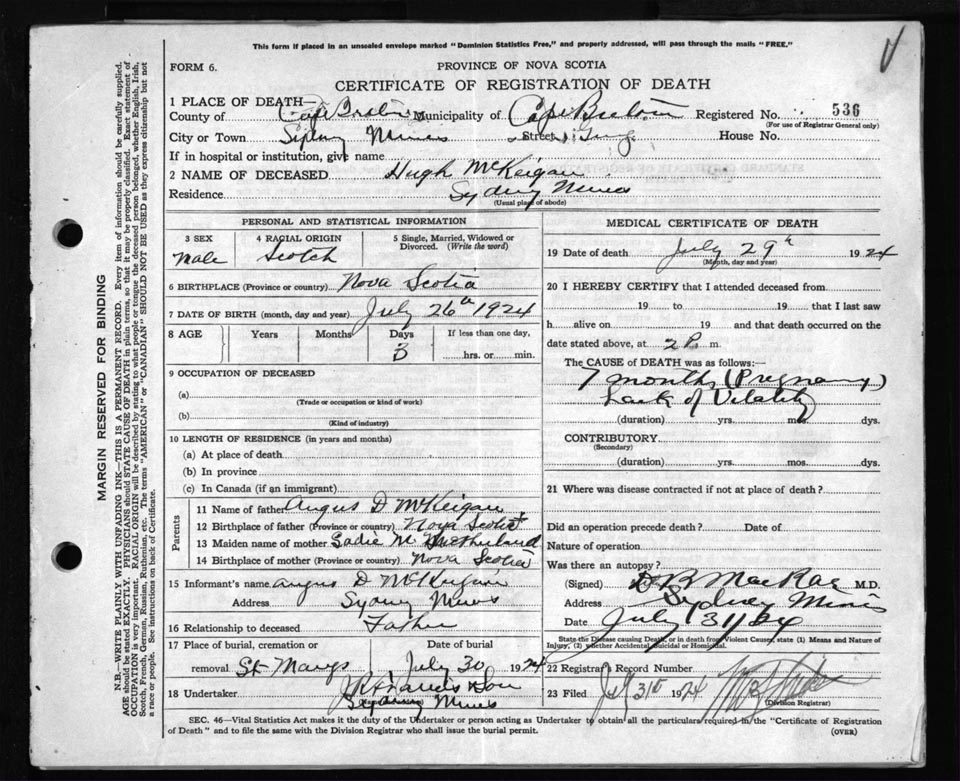 This form if placed in an unsealed envelope marked "Dominion Statistics Free," and properly addressed, will pass through the mails "FREE."
FORM 6.
PROVINCE OF NOVA SCOTIA
CERTIFICATE OF REGISTRATION OF DEATH
1 PLACE OF DEATH—
County of Cape Breton Municipality of Cape Breton Registered No. 536
(For use of Registrar General only)
City or Town Sydney Mines Street House No.
If in hospital or institution, give name
2 NAME OF DECEASED Hugh McKeigan
Residence Sydney Mines
(Usual place of abode)
PERSONAL AND STATISTICAL INFORMATION
3 SEX
Male
4 RACIAL ORIGIN
Scotch
5 Single, Married, Widowed or Divorced. (Write the word)
6 BIRTHPLACE (Province or country) Nova Scotia
7 DATE OF BIRTH (month, day and year) July 26th 1924
8 AGE Years Months Days If less than one day,
hrs. or min.
9 OCCUPATION OF DECEASED
(a)
(Trade or occupation or kind of work)
(b)
(Kind of industry)
10 LENGTH OF RESIDENCE (in years and months)
(a) At place of death
(b) In province
(c) In Canada (if an immigrant)
Parents
11 Name of father Angus D McKeigan
12 Birthplace of father (Province or country) Nova Scotia
13 Maiden name of mother Sadie M
14 Birthplace of mother (Province or country) Nova Scotia
15 Informant's name Angus D McKeigan
Address Sydney Mines
16 Relationship to deceased Father
17 Place of burial, cremation or Date of burial
removal St Marys July 30 1924
18 Undertaker J R Francis Son
Sydney Mines
MEDICAL CERTIFICATE OF DEATH
19 Date of death July 29th 1924
(Month, day and year)
20 I HEREBY CERTIFY that I attended deceased from
19 to 19 that I last saw
h alive on 19 and that death occurred on the
date stated above, at 2 P. m.
The CAUSE of DEATH was as follows:—
7 months (Pregnancy)
Lack of Vitality
(duration) yrs. mos. dys.
CONTRIBUTORY
(Secondary)
(duration) yrs. mos. dys.
21 Where was disease contracted if not at place of death?
Did an operation precede death? Date of
Nature of operation
Was there an autopsy?
(Signed) D B MacRae M.D.
Address Sydney Mines
Date July 31/24
State the Disease causing Death, or in death from Violent Causes, state (1) Means and Nature of Injury, (2) whether Accidental, Suicidal or Homicidal.
22 Registrars Record Number
23 Filed July 31st 1924
(Division Registrar)
SEC. 46—Vital Statistics Act makes it the duty of the Undertaker or person acting as Undertaker to obtain all the particulars required in the "Certificate of Registration
of Death" and to file the same with the Division Registrar who shall issue the burial permit. (OVER)
MARGIN RESERVED FOR BINDING
N.B.—WRITE PLAINLY WITH UNFADING INK—THIS IS A PERMANENT RECORD. Every item of information should be carefully supplied.
AGE should be stated EXACTLY. PHYSICIANS should STATE CAUSE OF DEATH in plain terms, so that it may be properly classified. Exact statement of
OCCUPATION is very important. RACIAL ORIGIN will be described by stating to what people or tongue the deceased person belonged, whether English, Irish,
Scotch, French, German, Russian, Ruthenian, etc. The terms "AMERICAN" or "CANADIAN" SHOULD NOT BE USED as they express citizenship but not
a race or people. See instructions on back of Certificate.